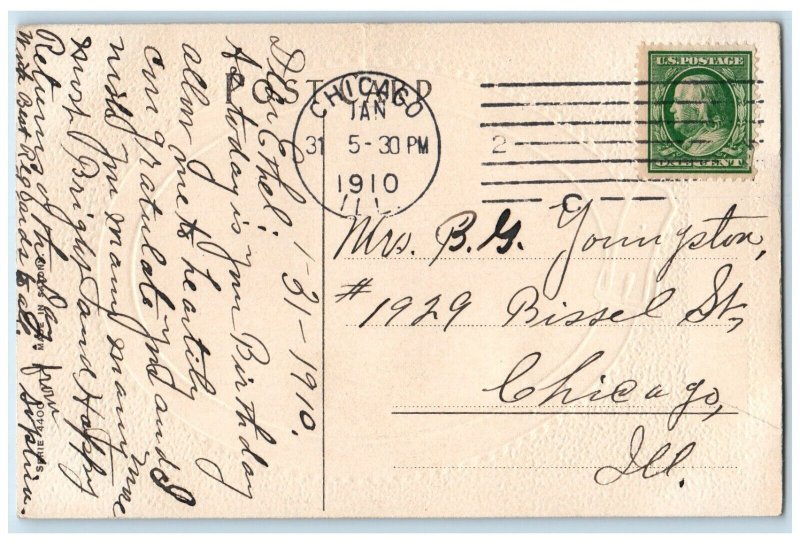 POST CARD
U.S. POSTAGE
CHICAGO
JAN
31 5-30 PM
1910
ILL.
2
C
Mrs. B. G. Youngston,
# 1929 Bissel St,
Chicago,
Ill.
1-31-1910.
Dear Ethel:
As today is your Birthday
allow me to heartily
congratulate you and I
wish you many many more
most Bright and Happy
Returns of the Day. from
With Best Regards to all. Sophia.
SERIE 440
MADE IN SAXONY